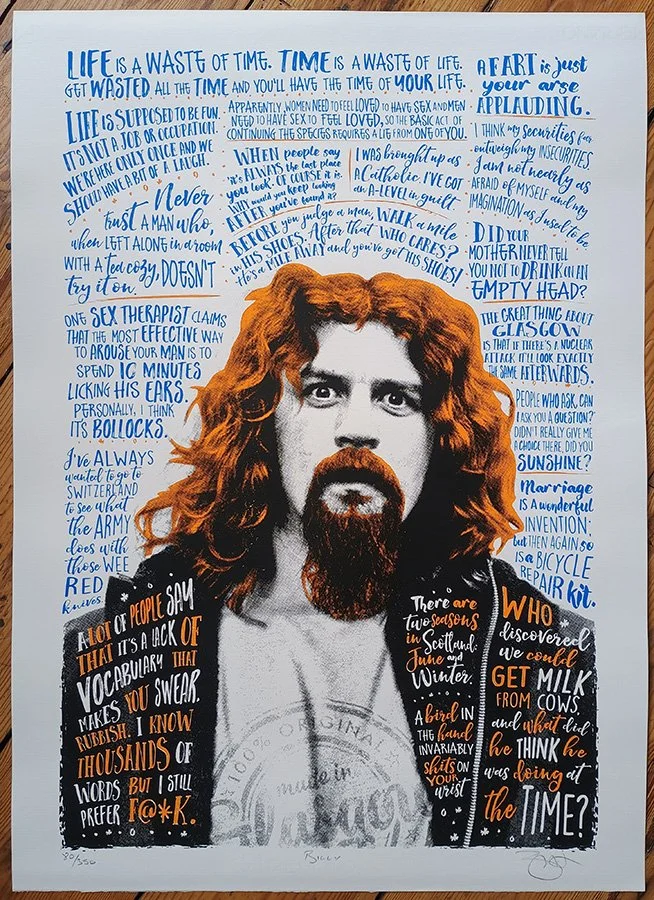 LIFE IS A WASTE OF TIME. TIME IS A WASTE OF LIFE.
GET WASTED ALL THE TIME AND YOU'LL HAVE THE TIME OF YOUR LIFE.
A FART is just
your arse
APPLAUDING.
LIFE IS SUPPOSED TO BE FUN.
IT'S NOT A JOB OR OCCUPATION.
WE'RE HERE ONLY ONCE AND WE
SHOULD HAVE A BIT OF A LAUGH.
APPARENTLY, WOMEN NEED TO FEEL LOVED TO HAVE SEX AND MEN
NEED TO HAVE SEX TO FEEL LOVED, SO THE BASIC ACT OF
CONTINUING THE SPECIES REQUIRES A LIE FROM ONE OF YOU.
I THINK my SECURITIES far
outweigh my INSECURITIES.
I am not nearly as
AFRAID OF MYSELF and my
IMAGINATION as I used to be.
WHEN people say
'it's ALWAYS the last place
you look. OF COURSE it is.
WHY would you KEEP looking
AFTER you've found it?
I WAS brought up as
A Catholic. I'VE GOT
an A-LEVEL in guilt
Never
trust A MAN who,
when LEFT ALONE in a room
WITH A tea cozy, DOESN'T
try it on.
BEFORE you judge a man, WALK a mile
in HIS SHOES. After that WHO CARES?
He's a MILE AWAY and you've got HIS SHOES!
DID YOUR
MOTHER NEVER TELL
YOU NOT TO DRINK ON AN
EMPTY HEAD?
ONE SEX THERAPIST CLAIMS
THAT THE MOST EFFECTIVE WAY
TO AROUSE YOUR MAN IS TO
SPEND 10 MINUTES
LICKING HIS EARS.
PERSONALLY, I THINK
IT'S BOLLOCKS.
THE GREAT THING ABOUT
GLASGOW
IS THAT IF THERE'S A NUCLEAR
ATTACK IT'LL LOOK EXACTLY
THE SAME AFTERWARDS.
PEOPLE WHO ASK, CAN
I ASK YOU A QUESTION?'
DIDN'T REALLY GIVE ME
A CHOICE THERE, DID YOU
SUNSHINE?
I've ALWAYS
wanted to go to
SWITZERLAND
to see what
the ARMY
does with
those WEE
RED
knives.
Marriage
IS A wonderful
INVENTION;
but THEN AGAIN SO
IS a BICYCLE
REPAIR kit.
A LOT OF PEOPLE SAY
THAT IT'S A LACK OF
VOCABULARY THAT
MAKES YOU SWEAR.
RUBBISH. I KNOW
THOUSANDS OF
WORDS BUT I STILL
PREFER F@*K.
There are
two seasons
in Scotland:
June and
Winter.
A bird IN
THE hand
INVARIABLY
shits ON
YOUR
wrist
WHO
discovered
we could
GET MILK
FROM COWS,
and what did
he THINK he
was doing at
the TIME?
100% ORIGINAL
made in
Glasgow
80/350
BILLY